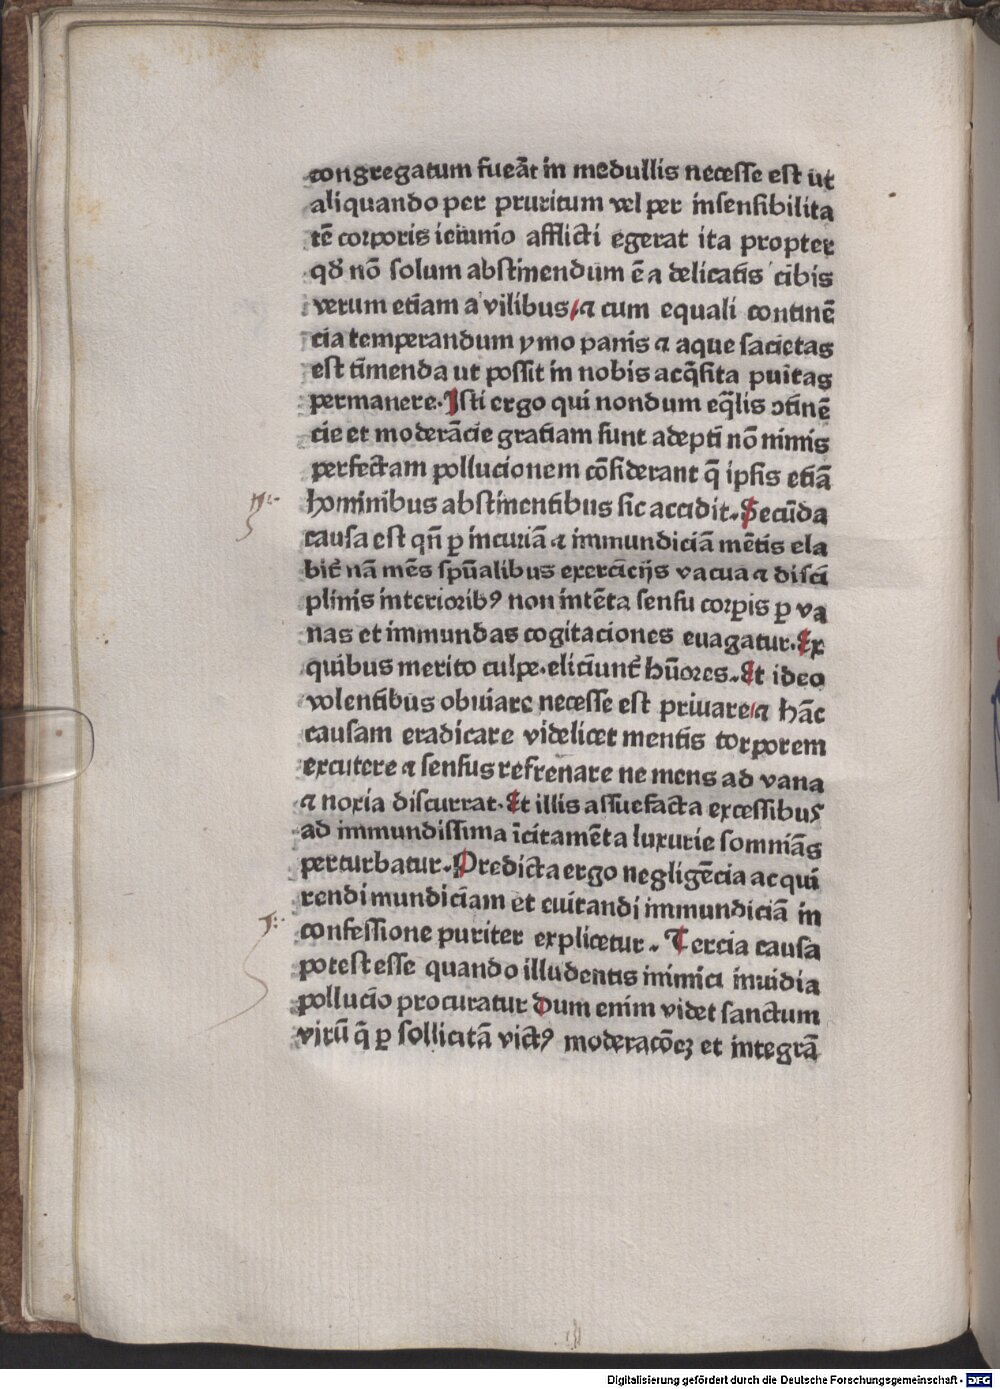 congregatum fuea᷑t in medullis necesse est ut
aliquando per pruritum vel per insensibilita
tē corporis ieiunio afflicti egerat ita propter
qd̛ nō solum abstinendum ē a delicatis cibis
verum etiam a vilibus / ⁊ cum equali continē
cia temperandum ymo panis ⁊ aque sacietas
est timenda ut possit in nobis acq̄sita puītas
permanere. Isti ergo qui nondum eq̄lis ↄtinē
cie et moderācie gratiam sunt adepti nō nimis
perfectam pollucionem cōsiderant q̄ ipsis etiā
hominibus abstinentibus sic accidit. Secūda
causa est qn̄ ꝑ incuriā ⁊ immundiciā mētis ela
bit᷑ nā mēs spūalibus exercicijs vacua ⁊ disci
plinis interioribꝰ non intēta sensu corꝑis ꝑ va
nas et immundas cogitaciones euagatur. Ex
quibus merito culpe. eliciunt᷑ hūores. Et ideo
volentibus obuiare necesse est priuare / ⁊ hāc
causam eradicare videlicet mentis torporem
excutere ⁊ sensus refrenare ne mens ad vana
⁊ noxia discurrat. Et illis assuefacta excessibus
ad immundissima īcitamēta luxurie somniās
perturbatur. Predicta ergo negligēcia acqui
rendi mundiciam et euitandi immundiciā in
confessione puriter explicetur. Tercia causa
potest esse quando illudentis inimici inuidia
pollucio procuratur dum enim videt sanctum
virū q̄ ꝑ sollicitā victꝰ moderacōeꝫ et integrā
Digitalisierung gefördert durch die Deutsche Forschungsgemeinschaft - DFG